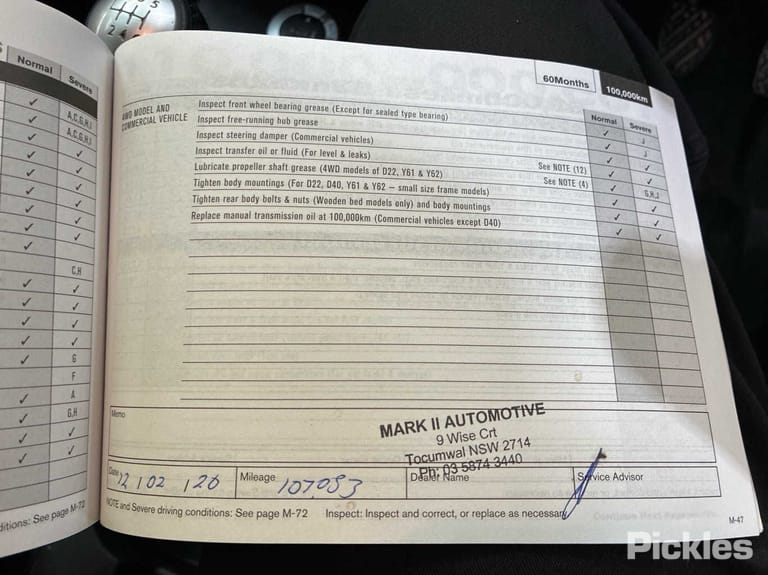 5
2 4
Normal
Severe
✓ A,C,G,H,I
✓ A,C,G,H,I
✓ ✓
✓ ✓
✓ ✓
✓ ✓
✓ ✓
✓ ✓
C,H
✓ ✓
✓ ✓
✓ ✓
✓ ✓
✓ G
F
✓ A
✓ G,H
✓ ✓
✓ ✓
60Months
100,000km
Normal Severe
4WD MODEL AND
COMMERCIAL VEHICLE
Inspect front wheel bearing grease (Except for sealed type bearing) ✓ J
Inspect free-running hub grease ✓ J
Inspect steering damper (Commercial vehicles) ✓ ✓
Inspect transfer oil or fluid (For level & leaks) See NOTE (12) ✓ ✓
Lubricate propeller shaft grease (4WD models of D22, Y61 & Y62) See NOTE (4) ✓ G,H,J
Tighten body mountings (For D22, D40, Y61 & Y62 – small size frame models) ✓ ✓
Tighten rear body bolts & nuts (Wooden bed models only) and body mountings ✓ ✓
Replace manual transmission oil at 100,000km (Commercial vehicles except D40) ✓ ✓
Memo
MARK II AUTOMOTIVE
9 Wise Crt
Tocumwal NSW 2714
Ph: 03 5874 3440
Date 12 / 02 / 20
Mileage 107,083
Dealer Name
Service Advisor
NOTE and Severe driving conditions: See page M-72 Inspect: Inspect and correct, or replace as necessary
ditions: See page M-72
M-47
Pickles